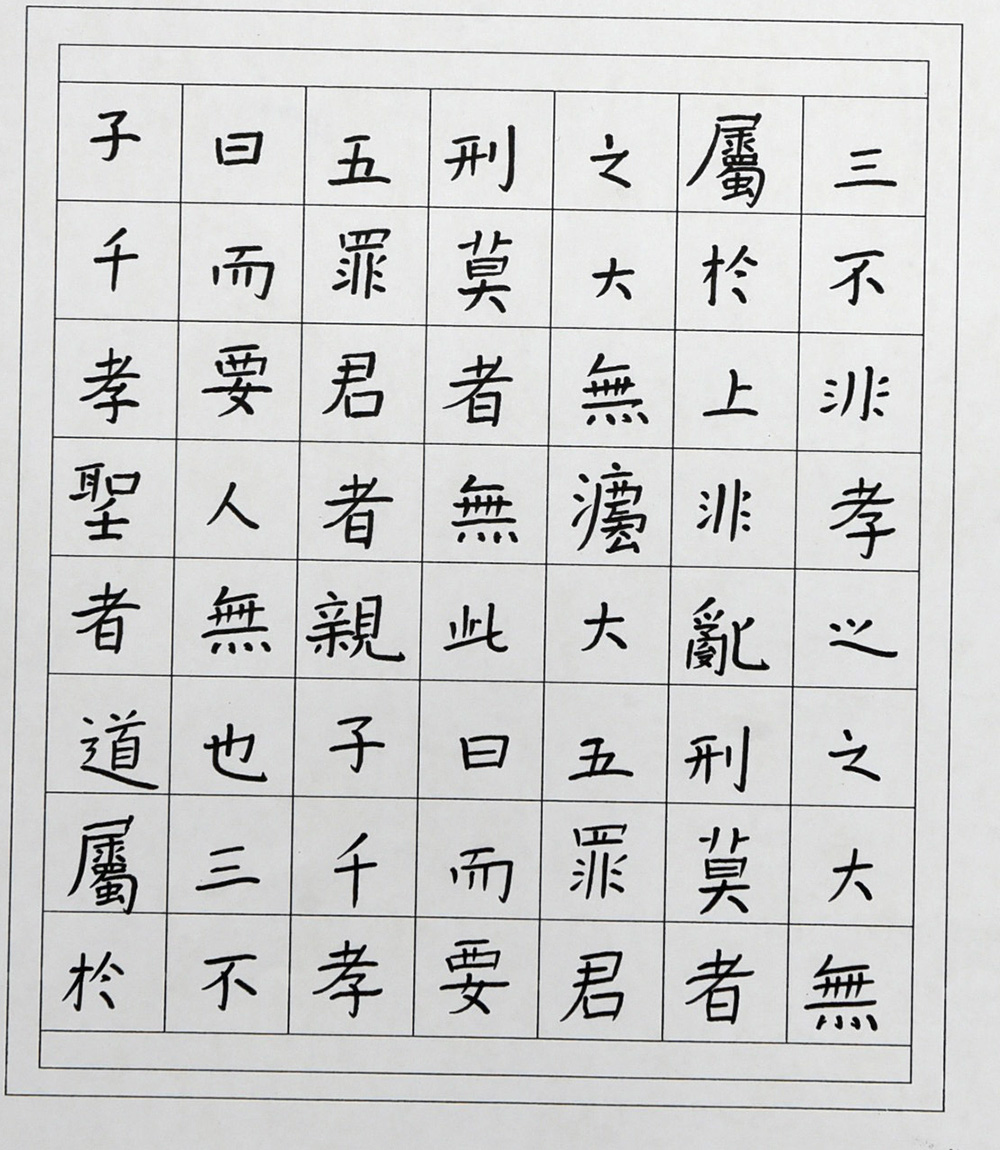 子曰五刑之屬三
千而罪莫大於不
孝要君者無上非
聖人者無灋非孝
者無親此大亂之
道也子曰五刑之
屬三千而罪莫大
於不孝要君者無